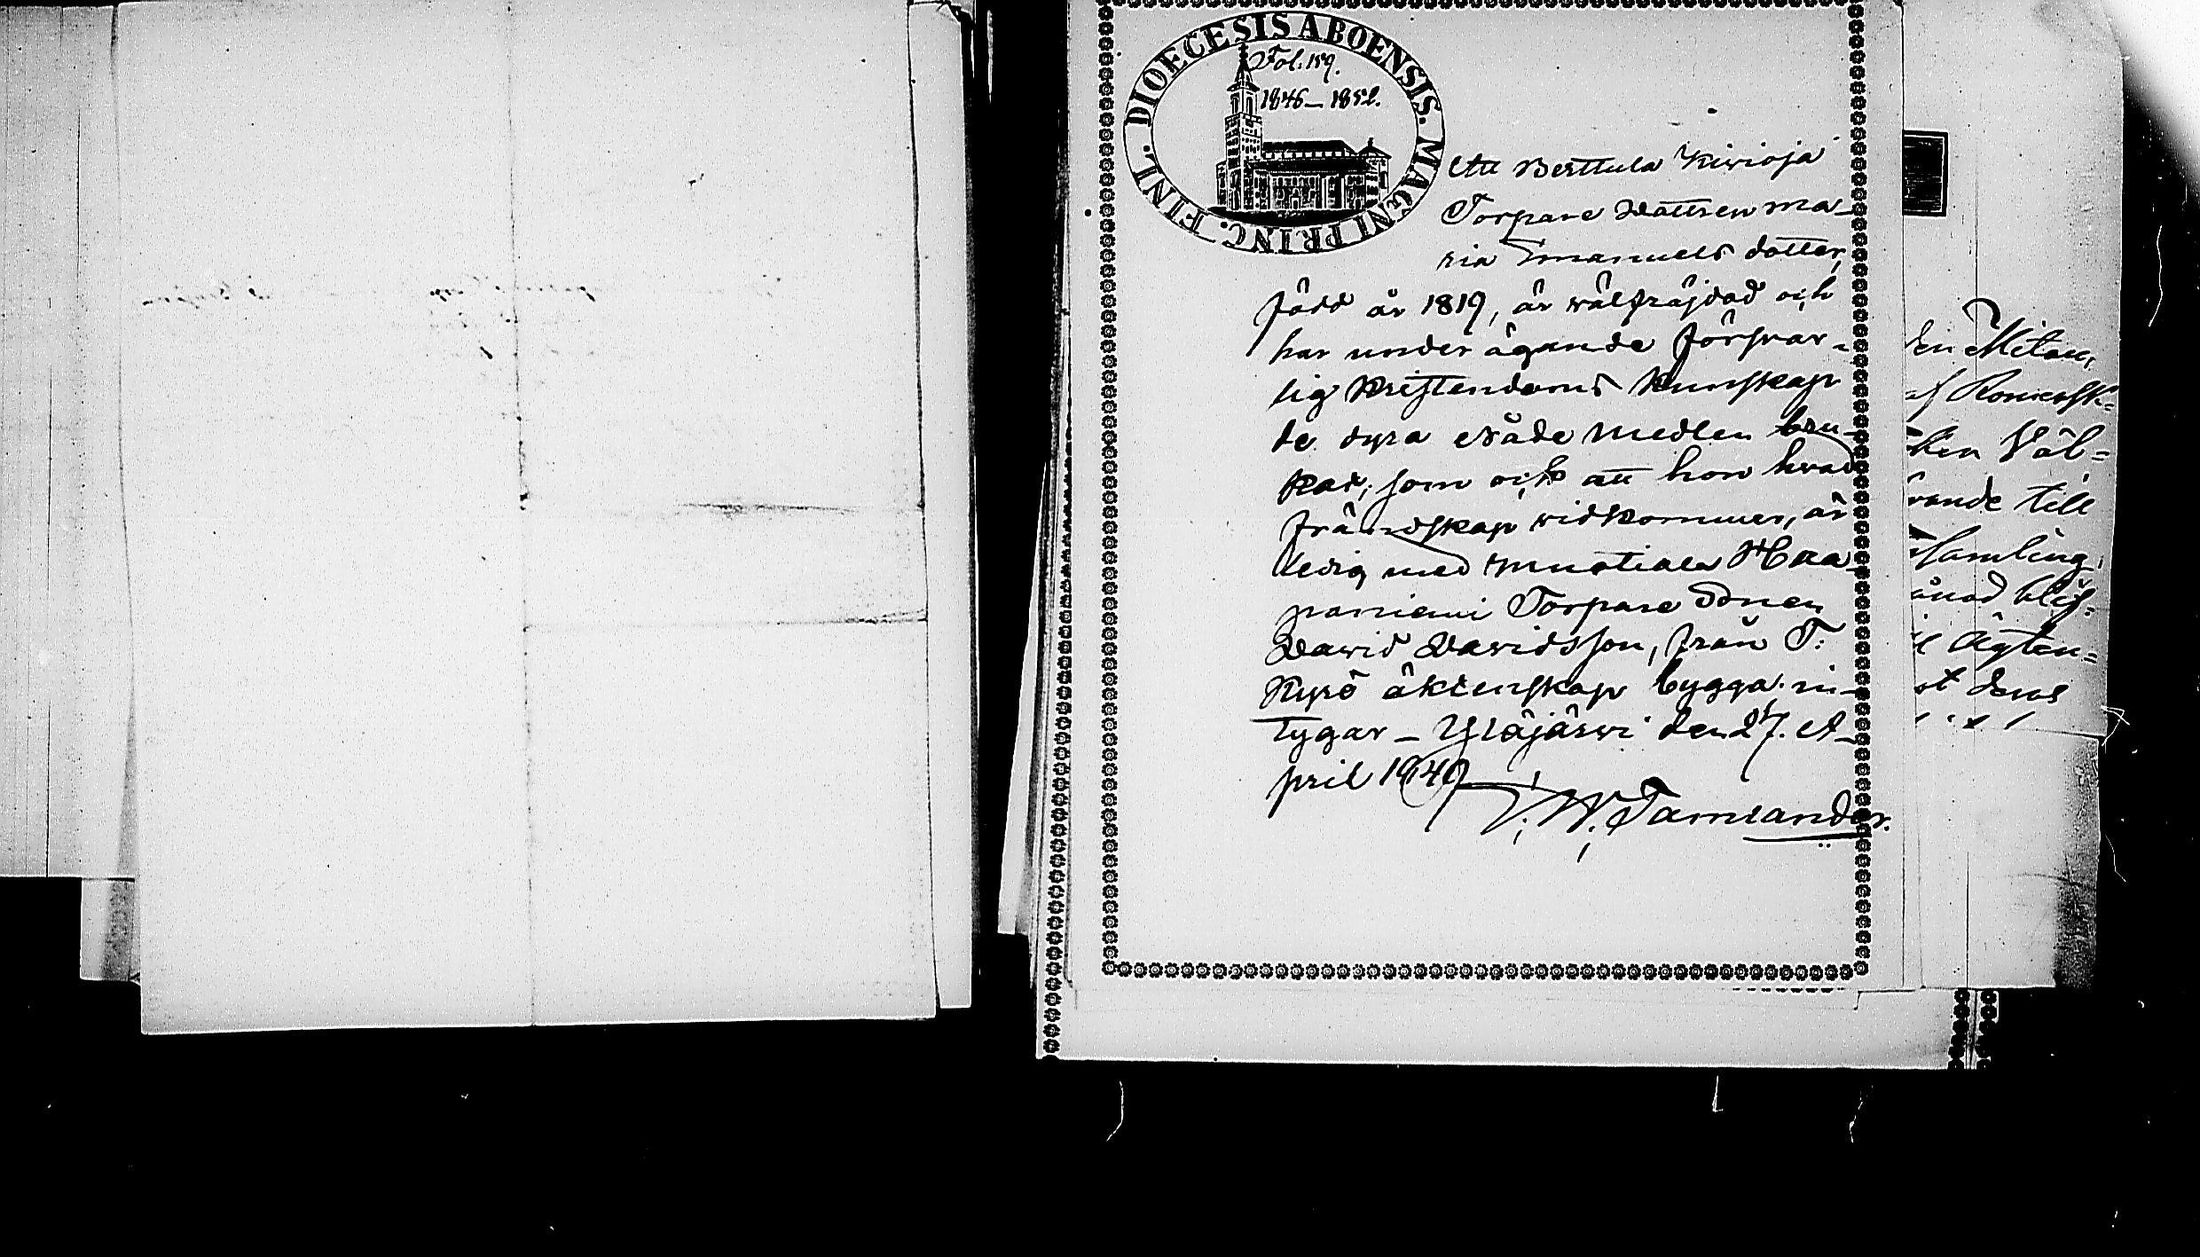 DIOECESIS ABOENSIS. MAGNI PRINC. FINL.
Fol. 159.
1846–1852.
Att Berttula Kivioja
Torpare Dottren Ma-
ria Emanuels dotter,
född år 1819, är välfräjdad och
har under ägande försvar-
lig Kristendoms Kunskap
de dyra Nåde medlen bru-
kat, som ock att hon hvad
frändskap vidkommer, är
ledig med Mustiala Haa-
paniemi Torpare Sonen
David Davidsson, från T:
Kyrö äktenskap bygga in-
tygar – Ylöjärvi den 27. A-
pril 1849
Tamlander.
den
af
Väl-
rande till
samling
Ägten-